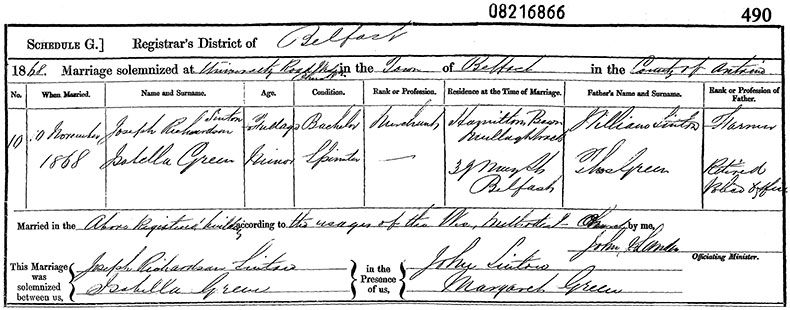 08216866 490
SCHEDULE G.] Registrar's District of Belfast
1868. Marriage solemnized at University Road in the Town of Belfast in the County of Antrim
No. When Married. Name and Surname. Age. Condition. Rank or Profession. Residence at the Time of Marriage. Father's Name and Surname. Rank or Profession of Father.
10 10 November 1868 Joseph Richardson Sinton Full age Bachelor Merchant Hamilton Bawn Mullaghbrack William Sinton Farmer
Isabella Green Minor Spinster — 39 Belfast Thos Green Retired
Married in the Above Registered building according to the usages of the Wes. Methodist Church by me,
John
Officiating Minister.
This Marriage was solemnized between us, { Joseph Richardson Sinton } in the Presence of us, { John Sinton
Isabella Green Margaret Green